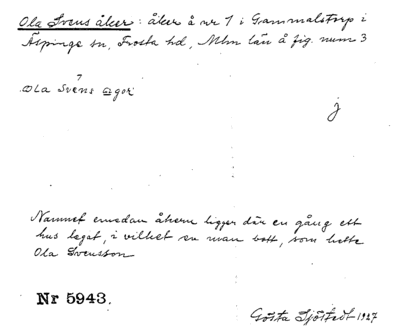 Ola Svens åker: åker å nr 1 i Gammalstorp i
Äspinge sn, Frosta hd, Mlm län å fig. num 3
Ola Svens
j
Namnet emedan åkern ligger där en gång ett
hus legat, i vilket en man bott, som hette
Ola Svensson
Nr 5943.
Gösta Sjöstedt 1927